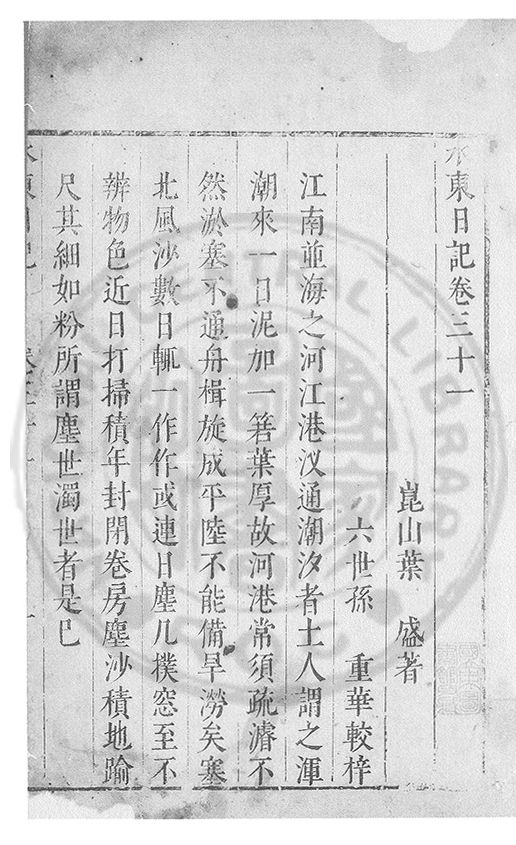 水東日記卷三十一
崑山葉 盛著
六世孫 重華較梓
江南並海之河江港汊通潮汐者土人謂之渾
潮來一日泥加一箬葉厚故河港常須疏濬不
然淤塞不通舟楫旋成平陸不能備旱澇矣塞
北風沙數日輒一作作或連日塵几撲窓至不
辨物色近日打掃積年封閉卷房塵沙積地踰
尺其細如粉所謂塵世濁世者是巳
水東日記